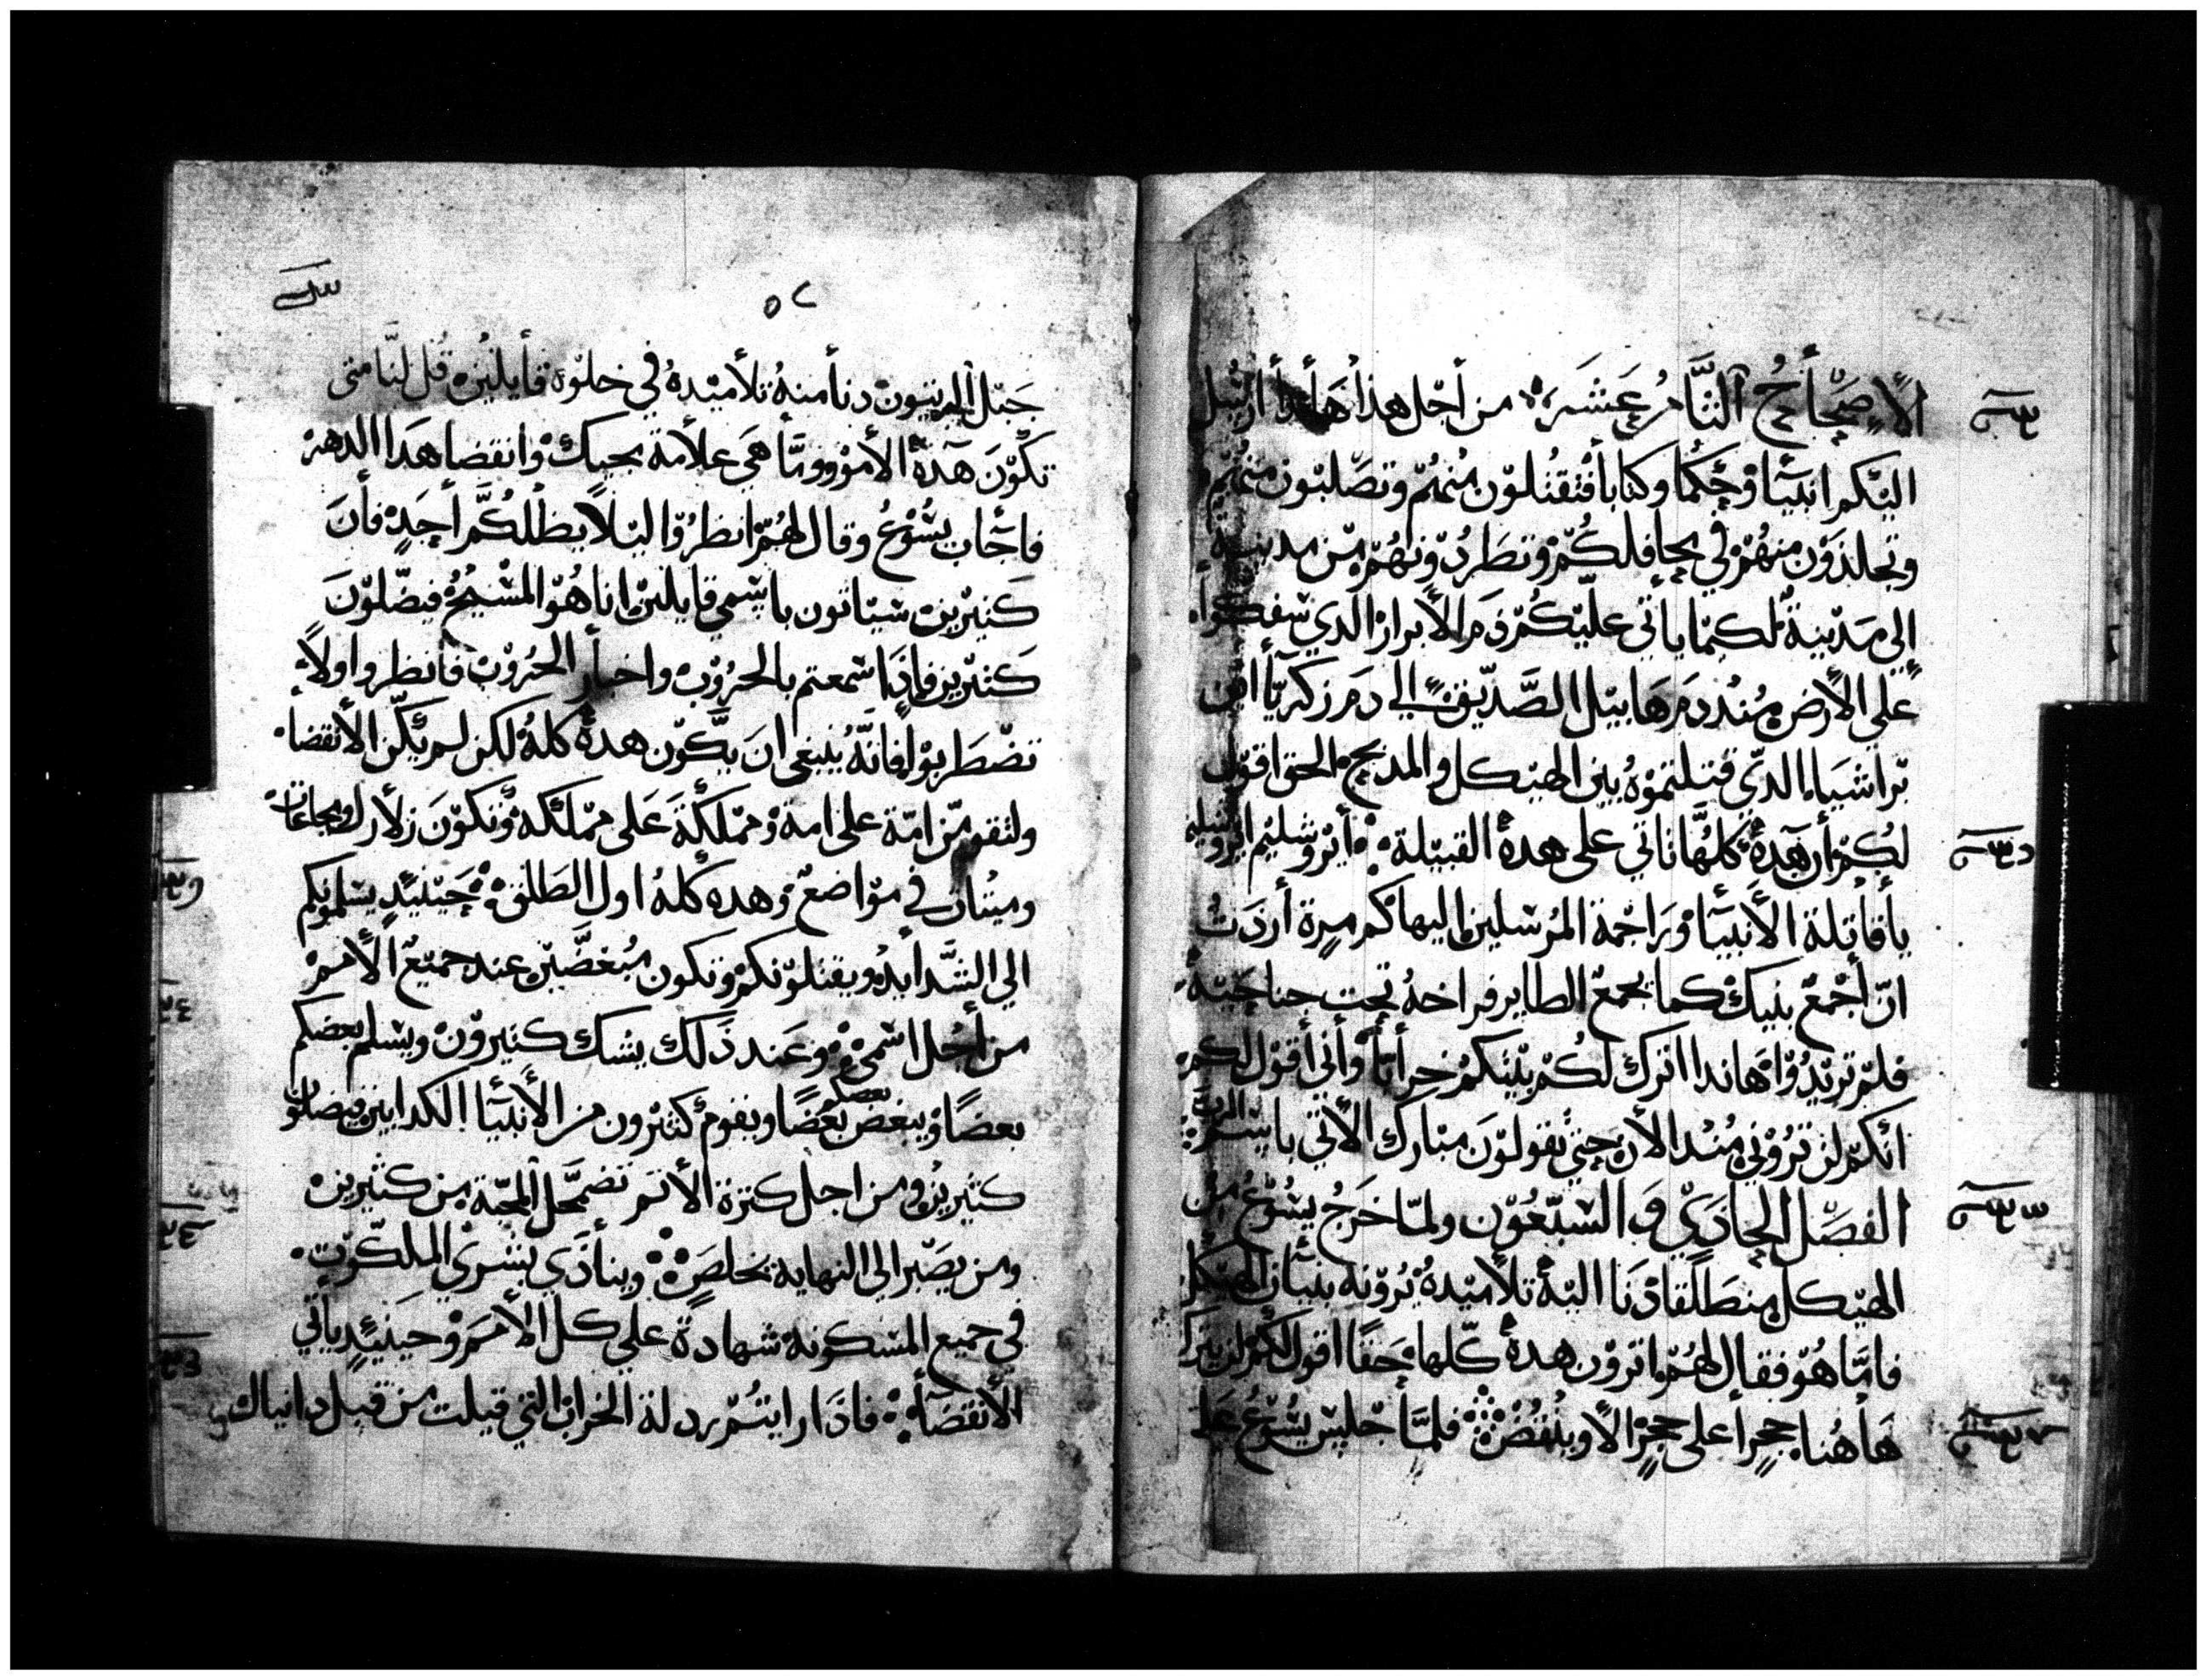 الأصحاح الثامن عشر من أجل هذا هأندا أرسل
اليكم انبيا وحكما وكتابا فتقتلون منهم وتصلبون منهم
وتجلدون منهم في محافلكم وتطردونهم من مدينة
إلى مدينة لكيما يأتي عليكم دم الأبرار الدي سفكوا
على الأرض مند دم هابيل الصديق الي دم زكريا ابن
براشياء الدي قتلتموه بين الهيكل والمدبح الحق اقول
لكم أن هده كلها تاتي على هده القبيلة أيروشليم ايروشليم
يا قاتلة الأنبيا وراجمة المرسلين اليها كم مرة أردت
ان أجمع بنيك كما يجمع الطاير فراخه تحت جناحيه
فلم تريدوا هاندا اترك لكم بيتكم خرابا وأني أقول لكم
انكم لن تروني مند الأن حتي تقولون مبارك الأتي باسم الرب
الفصل الحادي و السبعون ولما خرج يشوع من
الهيكل منطلقا دنا اليه تلاميده يرونه بنيان الهيكل
فاما هو فقال لهم اترون هده كلها حقا اقول لكم لن يترك
هاهنا حجرا على حجر الا وينقض فلما جلس يشوع على
٥٢
جبل الزيتون دنا منه تلاميده في خلوة قايلين قل لنا متى
تكون هده الأمور وما هي علامة مجيك وانقضا هدا الدهر
فاجاب يشوع وقال لهم انظروا ليلا يظلكم أحد فأن
كتيرين سياتون باسمي قايلين انا هو المسيح فيضلون
كتيرين فإدا سمعتم بالحروب واخبار الحروب فانظروا ولا
تضطربوا فانه ينبغي ان يكون هده كله لكن لم يكن الأنقضا
ولتقومن امة على امة ومملكة على مملكة وتكون زلازل ومجاعات
وميتان في مواضع وهده كله اول الطلق حينيد يسلمونكم
الي الشدايد ويقتلونكم وتكون مبغضين عند جميع الأمم
من أجل اسمي وعند دلك يشك كتيرون ويسلم بعضكم
بعضا ويبغض بعضكم بعضا ويقوم كتيرون من الأنبيا الكدابين فيضلون
كثيرين ومن اجل كترة الأتم تضمحل المحبة من كثيرين
ومن يصبر الى النهاية يخلص وينادي ببشري الملكوت
في جميع المسكونة شهادة علي كل الأمم وحينئد ياتي
الأنقضا فادا رايتم ردلة الخراب التي قيلت من قبل دانيال